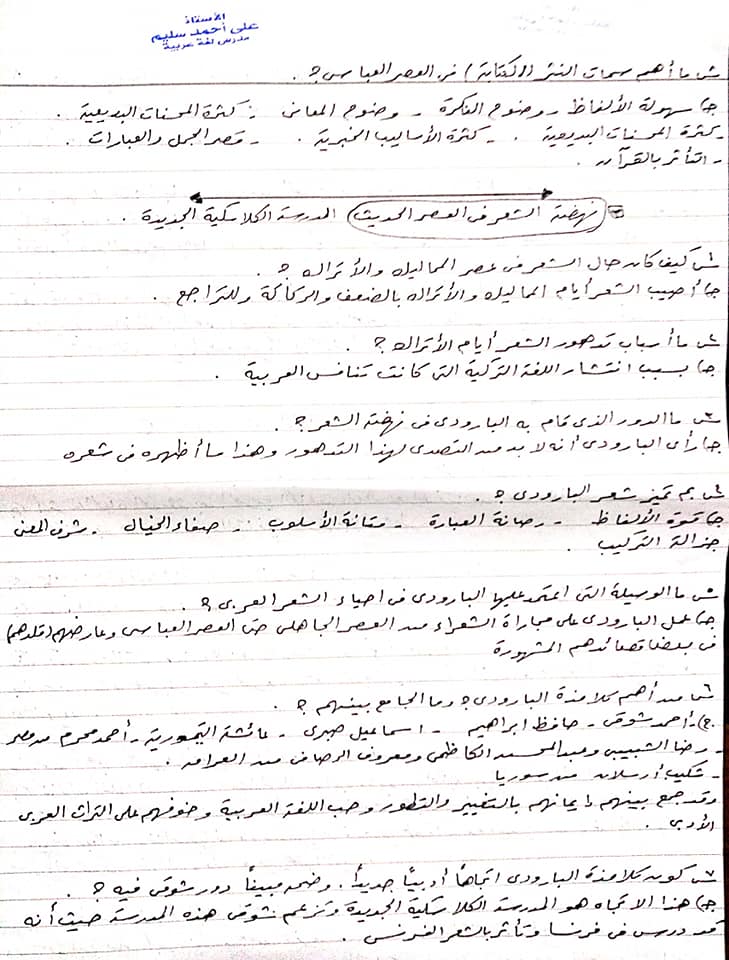 الأستاذ
على أحمد سليم
مدرس لغة عربية
س ما أهم سمات النثر (الكتابة) فى العصر العباسى ؟ .
جـ/ سهولة الألفاظ - وضوح الفكرة - وضوح المعانى - كثرة المحسنات البديعية .
- كثرة المحسنات البديعية . - كثرة الأساليب الخبرية . - قصر الجمل والعبارات .
- التأثر بالقرآن .
نهضة الشعر فى العصر الحديث) المدرسة الكلاسكية الجديدة .
س كيف كان حال الشعر فى عصر المماليك والأتراك ؟ .
جـ/ أصيب الشعر أيام المماليك والأتراك بالضعف والركاكة وللتراجع .
س ما أسباب تدهور الشعر أيام الأتراك ؟
جـ/ بسبب انتشار اللغة التركية التى كانت تنافس العربية .
س ما الدور الذى قام به البارودى فى نهضة الشعر ؟ .
جـ/ رأى البارودى أنه لا بد من التصدى لهذا التدهور وهذا ما أظهره فى شعره
س بم تميز شعر البارودى ؟ .
جـ/ قوة الألفاظ - رصانة العبارة - متانة الأسلوب - صفاء الخيال - شرف المعنى
جزالة التركيب .
س ما الوسيلة التى اعتمد عليها البارودى فى احياء الشعر العربى ؟ .
جـ/ عمل البارودى على مجاراة الشعراء من العصر الجاهلى حتى العصر العباسى وعارضهم (قلدهم)
فى بعض قصائدهم المشهورة
س من أهم تلامذة البارودى ؟ وما الجامع بينهم ؟ .
جـ/ - أحمد شوقى - حافظ ابراهيم - اسماعيل صبرى - عائشة التيمورية - أحمد محرم من مصر
- رضا الشبيبى وعبد المحسن الكاظمى ومعروف الرصافى من العراق .
- شكيب أرسلان من سوريا
وقد جمع بينهم إيمانهم بالتغيير والتطور وحب اللغة العربية وخوفهم على التراث العربى
الأدبى .
س كون تلامذة البارودى اتجاهاً أدبياً جديداً . وضح مبيناً دور شوقى فيه ؟ .
جـ/ هذا الاتجاه هو المدرسة الكلاسكية الجديدة وتزعم شوقى هذه المدرسة حيث أنه
قد درس فى فرنسا وتأثر بالشعر الفرنسى .